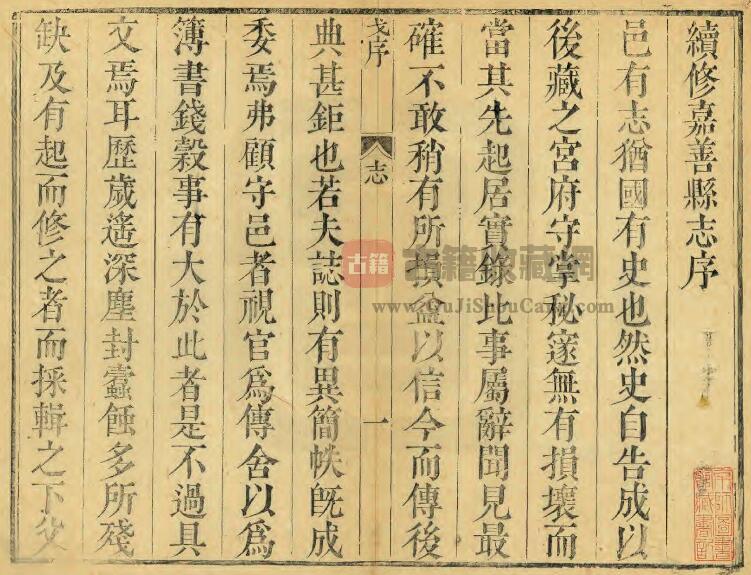 續修嘉善縣志序
邑有志猶國有史也然史自告成以
後藏之宮府守掌秘邃無有損壞而
當其先起居實錄比事屬辭聞見最
確不敢稍有所損益以信今而傳後
戈序
志
一
典甚鉅也若夫誌則有異簡帙旣成
委焉弗顧守邑者視官爲傳舍以爲
簿書錢穀事有大於此者是不過具
文焉耳歷歲遙深塵封蠹蝕多所殘
缺及有起而修之者而採輯之下父
古籍
古籍收藏網
www.GuJiShouCang.com